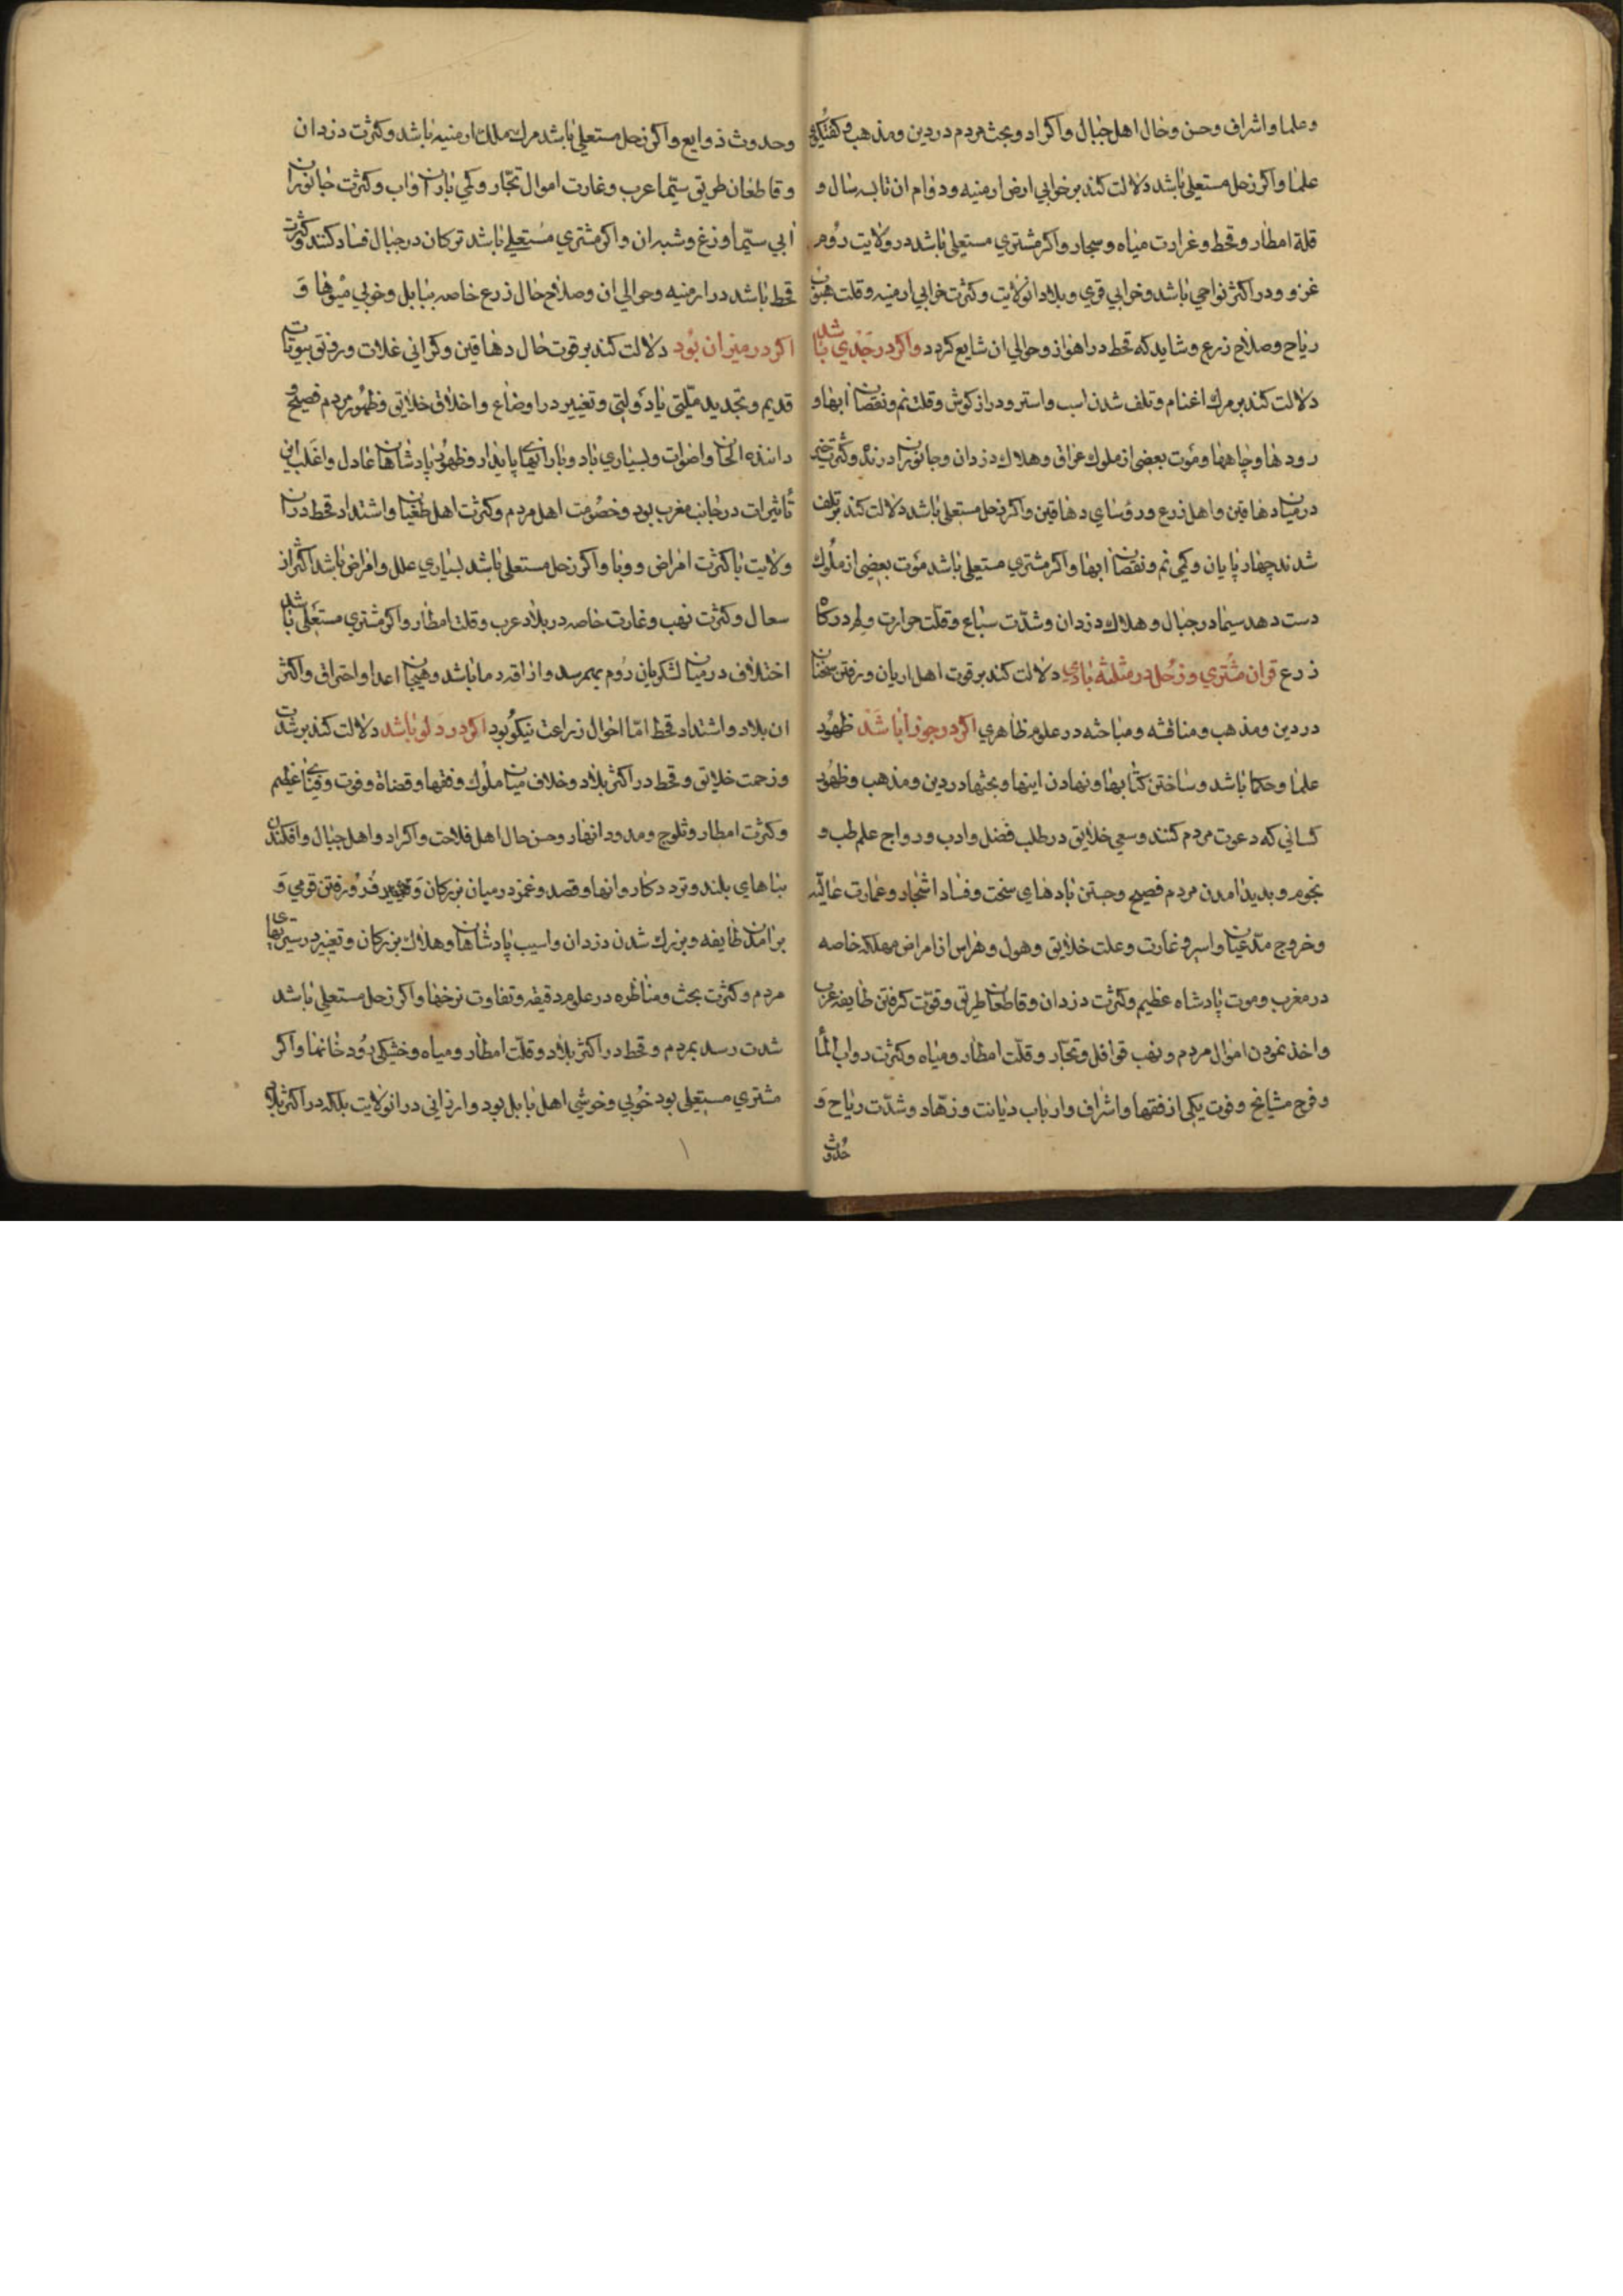 وعلما واشراف وحسن وحال اهل جبال واکراد وبحث مردم در دین ومذهب وکفتکوی
علما واکر زحل مستعلی باشد دلالت کند بر خوابی ارض ارمنیه ودوام ان تا سه سال و
قلة امطار وقحط وغرارت میاه وبحار واکر مشتری مستعلی باشد در ولایت روم
غزو ودر اکثر نواحی باشد وخوابی قری وبلاد انولایت وکثرت خرابی ارمنیه وقلت هبوب
ریاح وصلاح زرع وشاید که قحط در اهواز وحوالی ان شایع کردد واکر در جدی باشد
دلالت کند بر مرک اغنام وتلف شدن اسب واستر ودراز کوش وقلت نم ونقصان ابها و
رودها وچاهها وموت بعضی از ملوک عراق وهلاک دزدان وجانوران درنده وکثرت خیر
در میان دهاقین واهل زرع ورؤسای دهاقین واکر زحل مستعلی باشد دلالت کند بر تلف
شدن چهار پایان وکمی نم ونقصان ابها واکر مشتری مستعلی باشد موت بعضی از ملوک
دست دهد سیما در جبال وهلاک دزدان وشدت سباع وقلت حرارت
زرع قران مشتری وزحل در مثلثه بادی دلالت کند بر قوت اهل ادیان ورفتن سخنان
در دین ومذهب ومناقشه ومباحثه در علوم ظاهری اکر در جوزا باشد ظهور
علما وحکما باشد وساختن کتابها ونهادن اینها وبحثها در دین ومذهب وظهور
کسانی که دعوت مردم کنند وسعی خلایق در طلب فضل وادب ورواج علم طب و
نجوم وپدید امدن مردم فصیح وجستن بادهای سخت وفساد اشجار وعمارت عالیه
وخروج مدعیان واسر وغارت وعلت خلایق وهول وهراس از امراض مهلکه خاصه
در مغرب وموت پادشاه عظیم وکثرت دزدان وقاطعان طریق وقوت کرفتن طایفه عرب
واخذ نمودن اموال مردم ونهب قوافل وتجار وقلت امطار ومیاه وکثرت دواب الما
وفرح مشایخ وفوت یکی از فقها واشراف وارباب دیانت وزهاد وشدت ریاح و
حدوث
وحدوث ذوایع واکر زحل مستعلی باشد مرک ملک ارمنیه باشد وکثرت دزدان
وقاطعان طریق سیما عرب وغارت اموال تجار وکمی باران واب وکثرت جانوران
ابی سیما وزغ وشبه ان واکر مشتری مستعلی باشد ترکان در جبال فساد کنند وکثرت
قحط باشد در ارمنیه وحوالی ان وصلاح حال زرع خاصه ببابل وخوبی میوها و
اکر در میزان بود دلالت کند بر قوت حال دهاقین وکرانی غلات ورونق بیوتات
قدیم وتجدید ملتی یا دولتی وتغییر در اوضاع واخلاق خلایق وظهور مردم فصیح و
داننده الحان واصوات وبسیاری باد وبارانهای پایدار وظهور پادشاهان عادل واغلب این
تاثیرات در جانب مغرب بود وخصومت اهل مردم وکثرت اهل طغیان واشتداد قحط در ان
ولایت با کثرت امراض ووبا واکر زحل مستعلی باشد بسیاری علل وامراض باشد اکثر از
سعال وکثرت نهب وغارت خاصه در بلاد عرب وقلت امطار واکر مشتری مستعلی باشد
اختلاف در میان لشکریان روم بهم رسد واراقه دما باشد وهیجان اعدا واحتراق واکثر
ان بلاد واشتداد قحط اما احوال زراعت نیکو بود اکر در دلو باشد دلالت کند بر شدت
وزحمت خلایق وقحط در اکثر بلاد وخلاف میان ملوک وفقها وقضاة وفوت عظیم
وکثرت امطار وثلوج ومدود انهار وحسن حال اهل فلاحت واکراد واهل جبال وافکندن
بناهای بلند وتردد کاروانها وقصد وغمز در میان بزرکان فرو رفتن قومی و
بر امدن طایفه وبزرک شدن دزدان واسیب پادشاهان وهلاک بزرکان وتغییر در سیرتهای
مردم وکثرت بحث ومناظره در علوم دقیقه وتفاوت نرخها واکر زحل مستعلی باشد
شدت رسد بمردم وقحط در اکثر بلاد وقلت امطار ومیاه وخشکی رودخانها واکر
مشتری مستعلی بود خوبی وخوشی اهل بابل بود وارزانی در انولایت بلکه در اکثر بلاد
۱